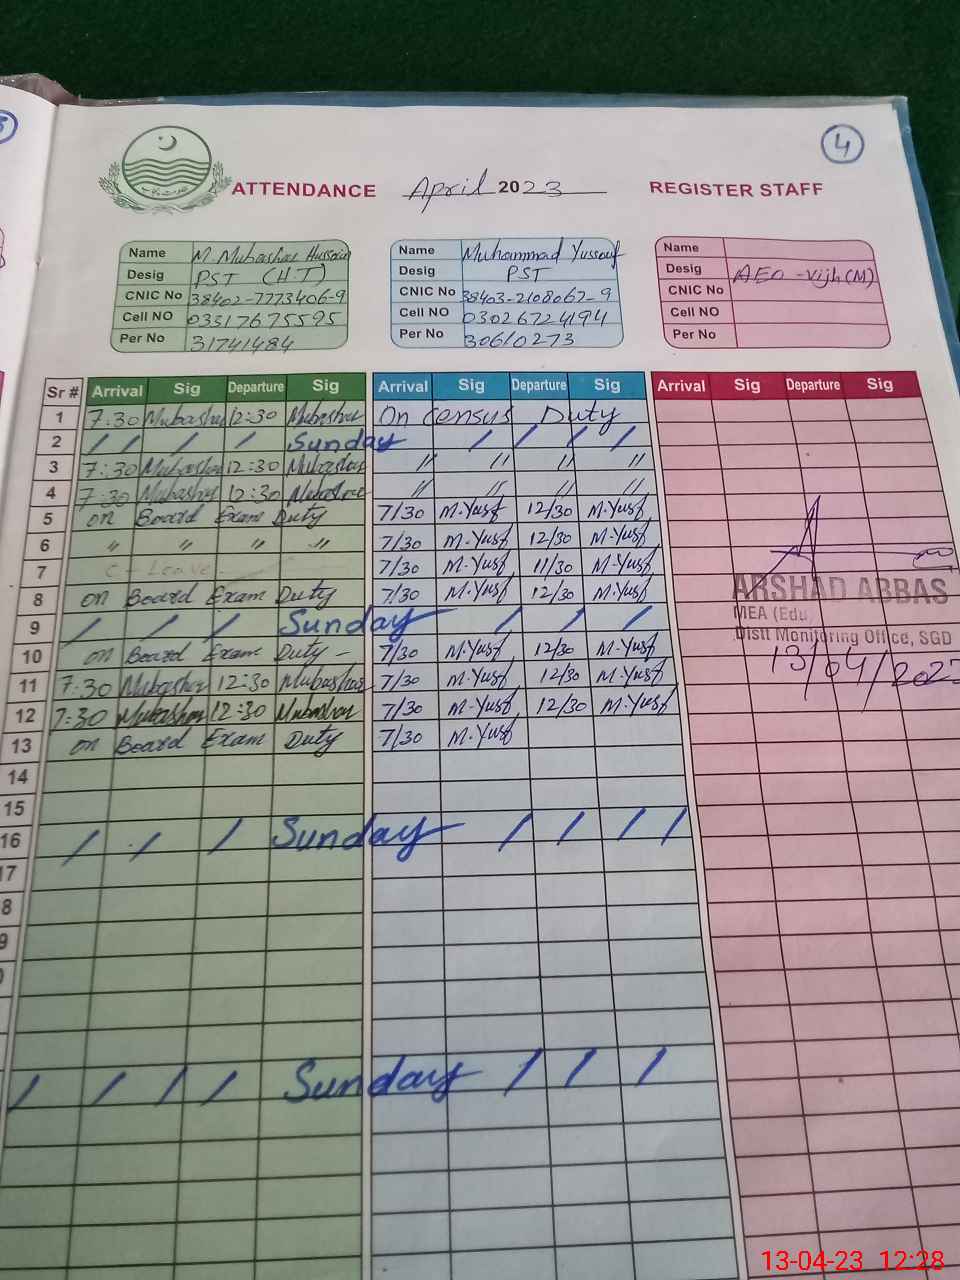 4
ATTENDANCE April 2023 REGISTER STAFF
Name M. Mubashar Hussain
Desig PST (HT)
CNIC No 38402-7773406-9
Cell NO 03317675595
Per No 31741484
Name Muhammad Yussouf
Desig PST
CNIC No 38403-2108067-9
Cell NO 03026724194
Per No 30610273
Name
Desig AEO - Vijh (M)
CNIC No
Cell NO
Per No
Sr # Arrival Sig Departure Sig Arrival Sig Departure Sig Arrival Sig Departure Sig
1 7:30 Mubashar 12:30 Mubashar On Census Duty
2 / / / / Sunday / / / /
3 7:30 Mubashar 12:30 Mubashar " " " "
4 7:30 Mubashar 12:30 Mubashar " " " "
5 on Board Exam Duty 7/30 M.Yusf 12/30 M.Yusf
6 " " " " 7/30 M.Yusf 12/30 M.Yusf
7 C-Leave 7/30 M.Yusf 11/30 M.Yusf
8 on Board Exam Duty 7/30 M.Yusf 12/30 M.Yusf
9 / / / Sunday / / /
10 on Board Exam Duty - 7/30 M.Yusf 12/30 M.Yusf
11 7:30 Mubashar 12:30 Mubashar 7/30 M.Yusf 12/30 M.Yusf
12 7:30 Mubashar 12:30 Mubashar 7/30 M-Yusf 12/30 M.Yusf
13 on Board Exam Duty 7/30 M.Yusf
14
15
16 / / / Sunday / / / /
17
8
9
/ / / / Sunday / / /
ARSHAD ABBAS
MEA (Edu)
Distt Monitoring Office, SGD
13/04/202
13-04-23 12:28